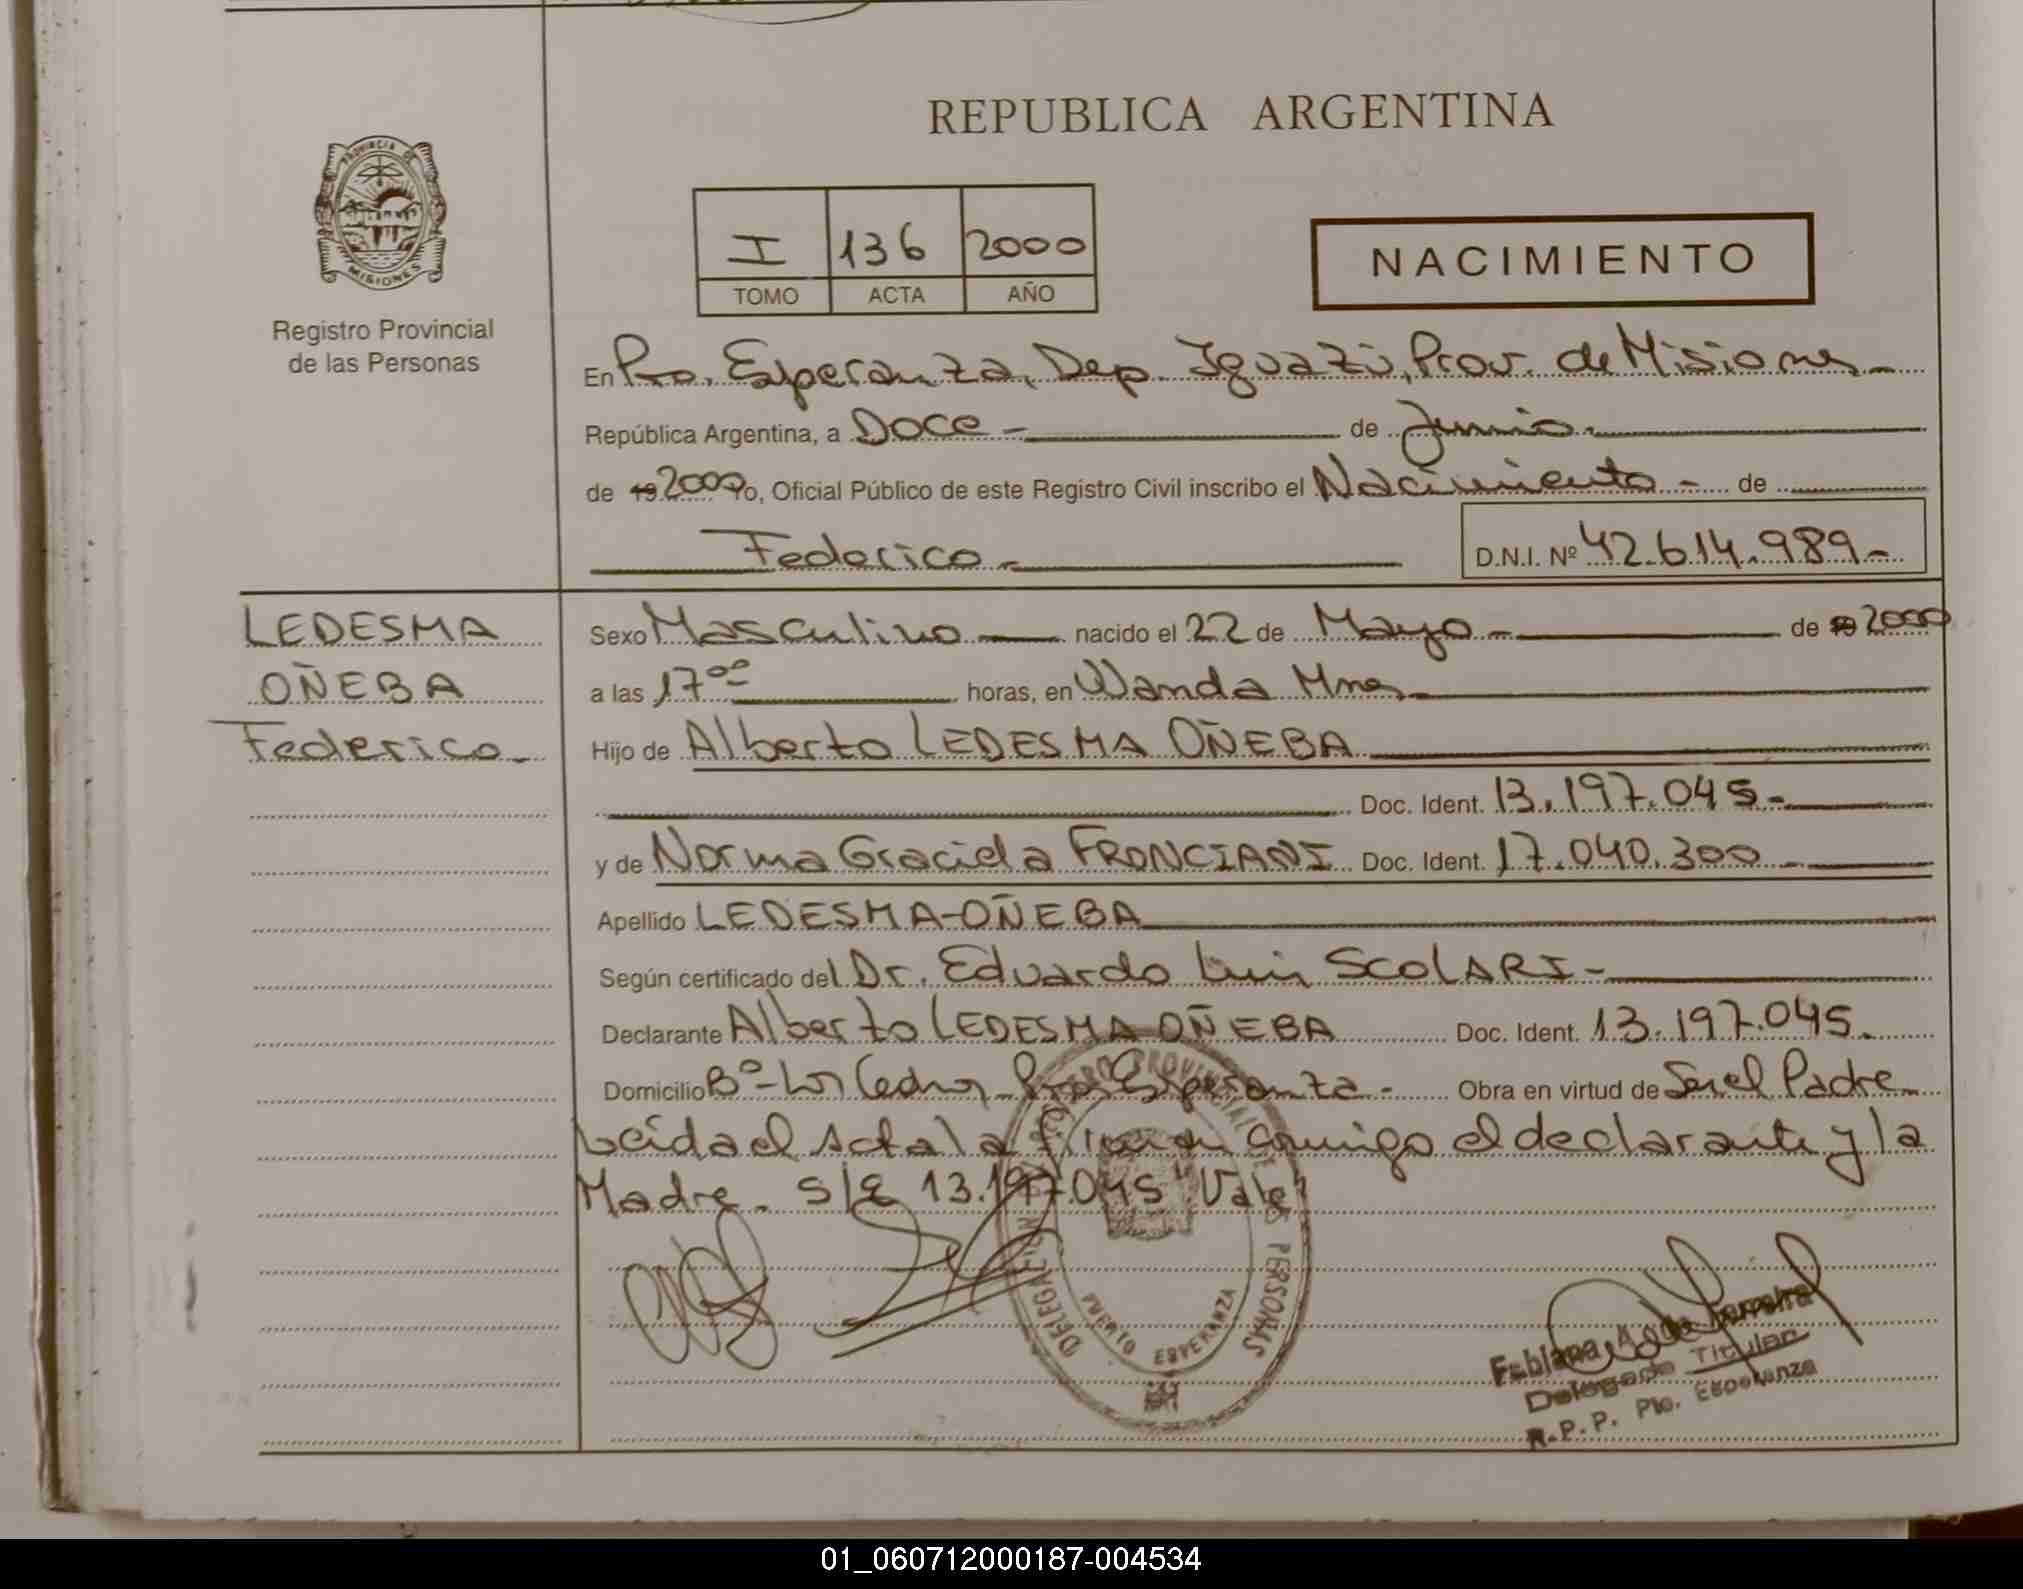 REPUBLICA ARGENTINA
PROVINCIA DE
MISIONES
Registro Provincial
de las Personas
I 136 2000
TOMO ACTA AÑO
NACIMIENTO
En Pto. Esperanza, Dep. Iguazú, Prov. de Misiones-
República Argentina, a Doce - de Junio-
de 19 2000 Yo, Oficial Público de este Registro Civil inscribo el Nacimiento - de
Federico- D.N.I. Nº 42.614.989-
LEDESMA
OÑEBA
Federico-
Sexo Masculino nacido el 22 de Mayo- de 19 2000
a las 17⁰⁰ horas, en Wanda Mnes-
Hijo de Alberto LEDESMA OÑEBA
Doc. Ident. 13.197.045-
y de Norma Graciela FRONCIANI Doc. Ident. 17.040.300-
Apellido LEDESMA-OÑEBA
Según certificado del Dr. Eduardo Luis SCOLARI-
Declarante Alberto LEDESMA OÑEBA Doc. Ident. 13.197.045.
Domicilio Bº-Los Cedros-Pto Esperanza- Obra en virtud de Ser el Padre
Leída el Acta la firman conmigo el declarante y la
Madre. S/E 13.197.045 "Vale"
REGISTRO PROVINCIAL DE LAS PERSONAS
PUERTO ESPERANZA
Fabiana A. de Ferreira
Delegado Titular
R.P.P. Pto. Esperanza
01_060712000187-004534